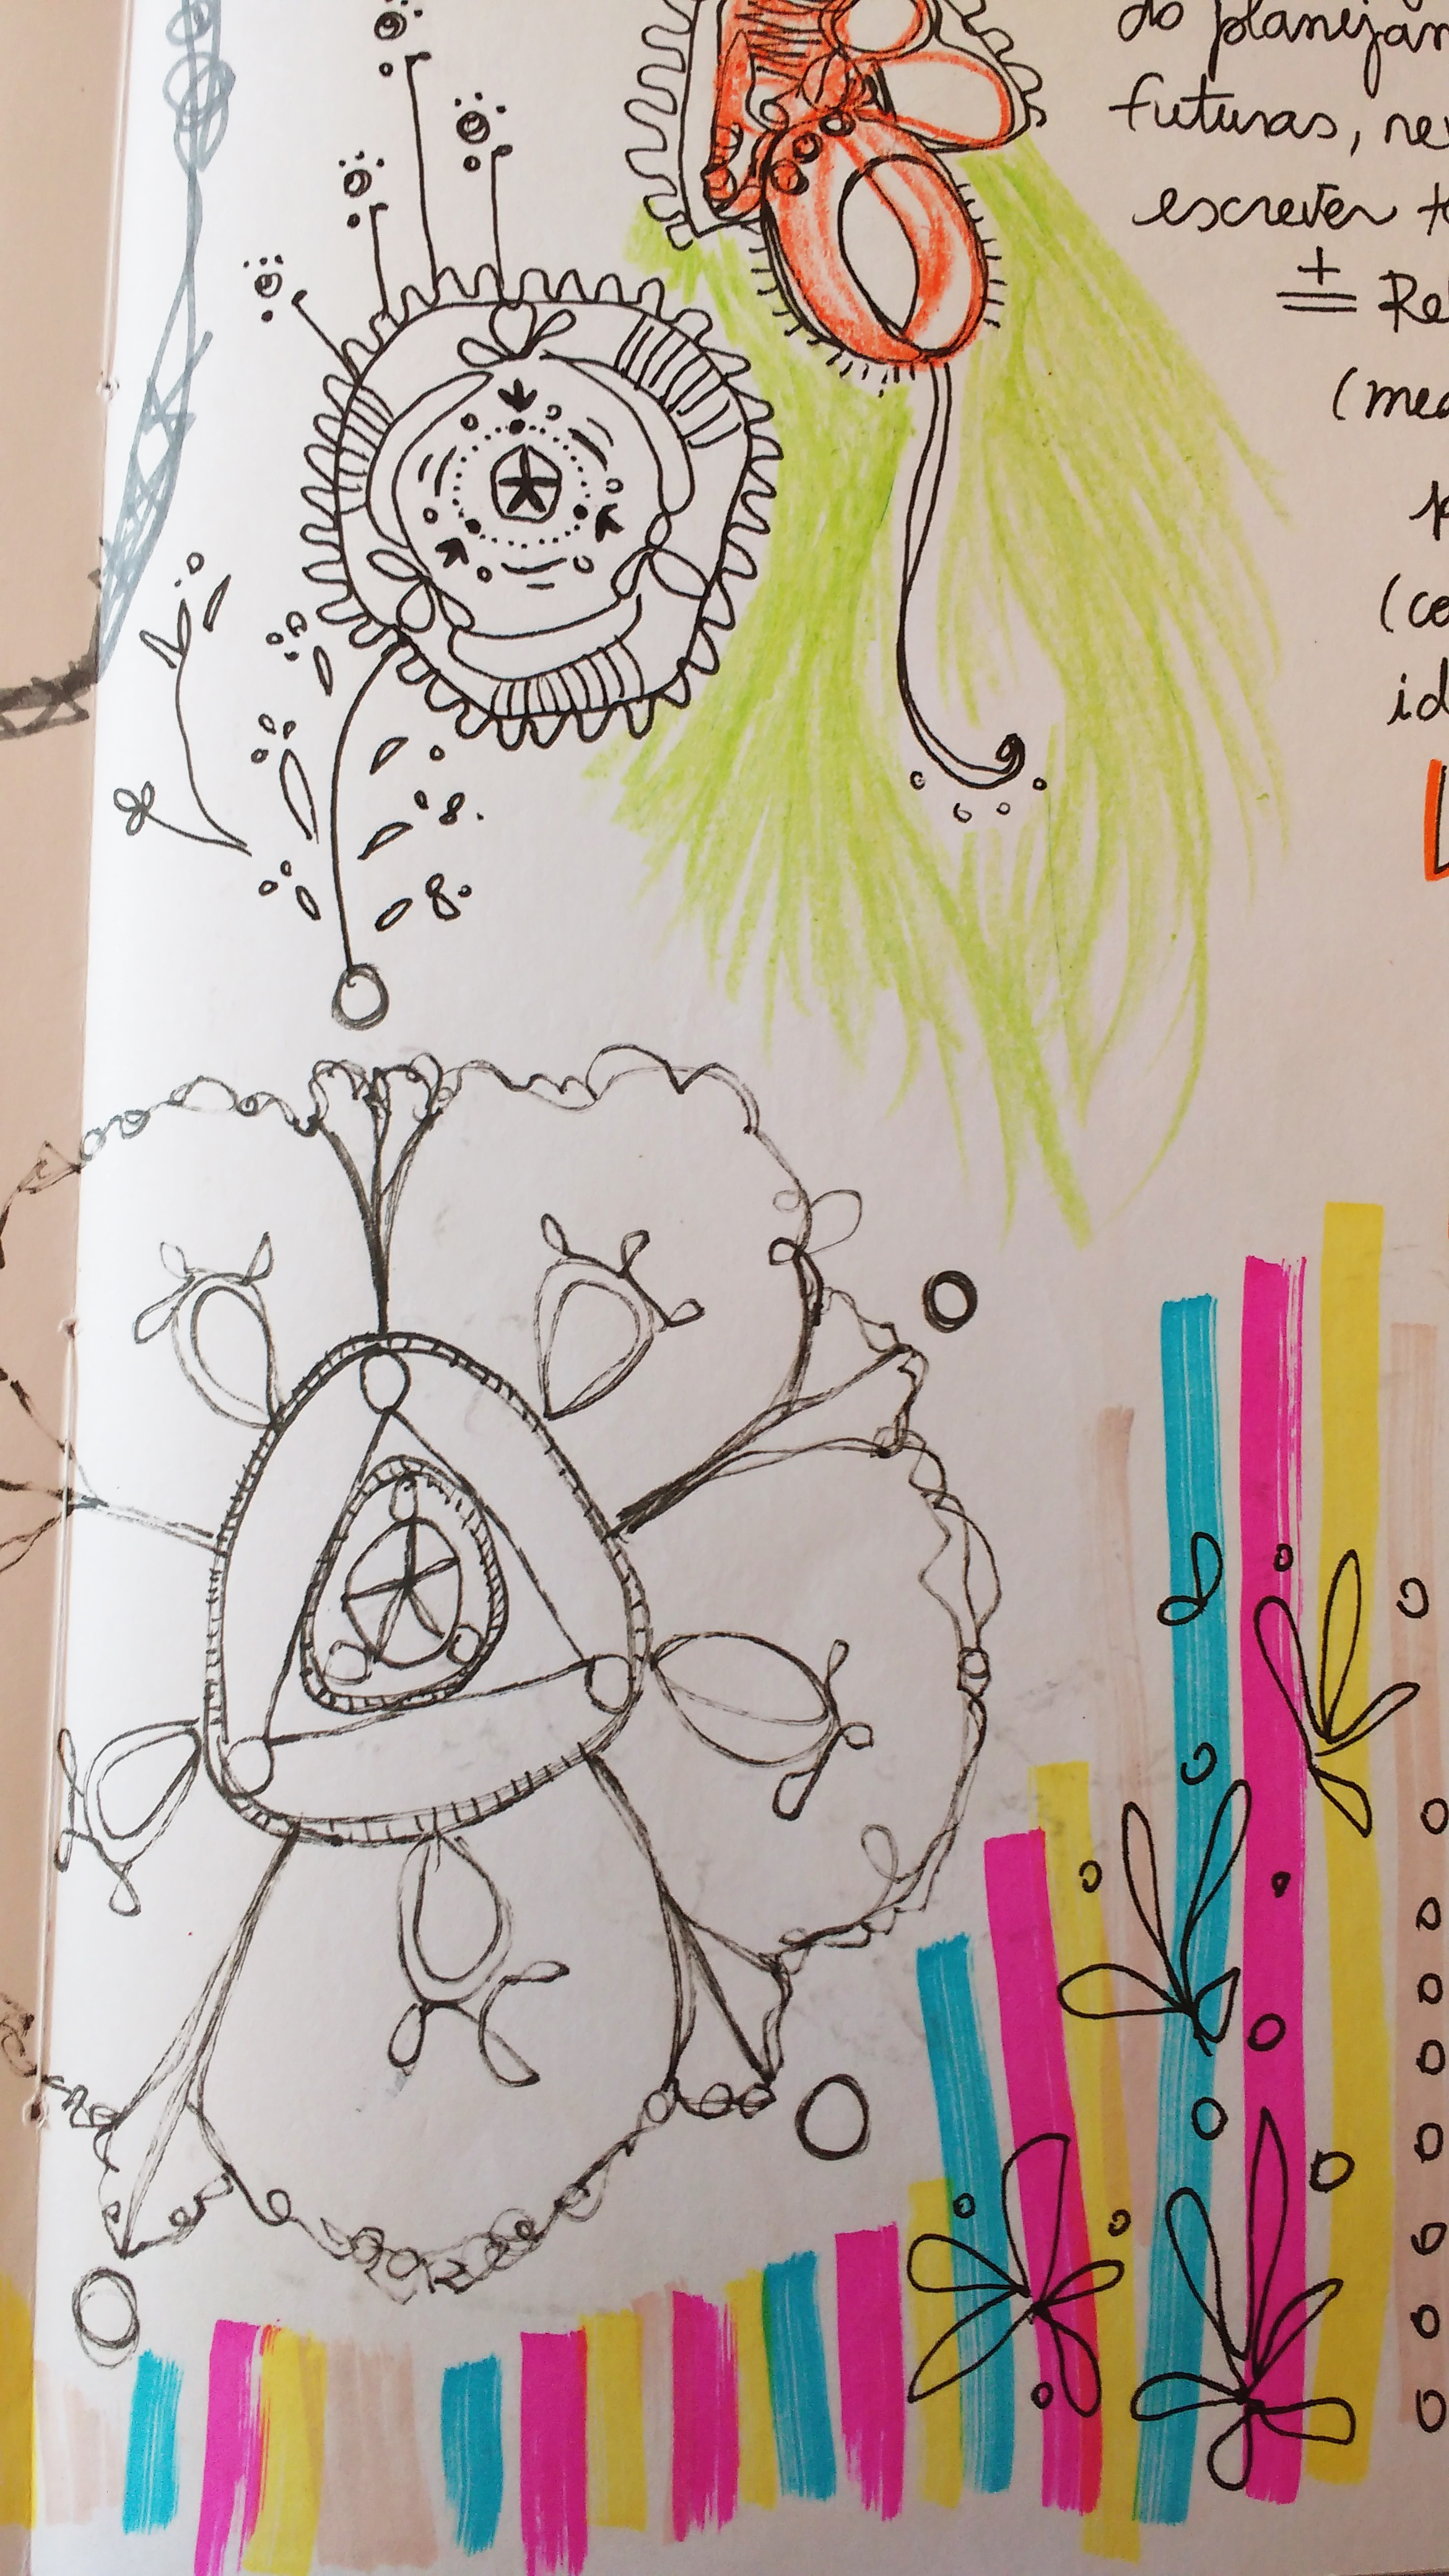 do planejam
futuras, rev
escrever to
+ Re
(med
p
(co
id